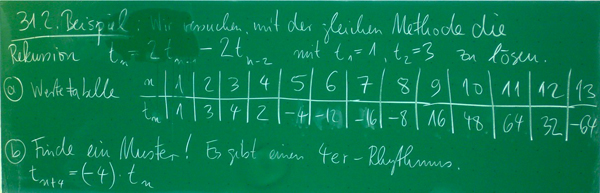 3.12. Beispiel: Wir versuchen, mit der gleichen Methode die
Rekursion tₙ = 2tₙ₋₁ - 2tₙ₋₂ mit t₁=1, t₂=3 zu lösen.
(a) Wertetabelle n | 1 | 2 | 3 | 4 | 5 | 6 | 7 | 8 | 9 | 10 | 11 | 12 | 13
tₙ | 1 | 3 | 4 | 2 | -4 | -12 | -16 | -8 | 16 | 48 | 64 | 32 | -64
(b) Finde ein Muster! Es gibt einen 4er-Rhythmus.
tₙ₊₄ = (-4) · tₙ